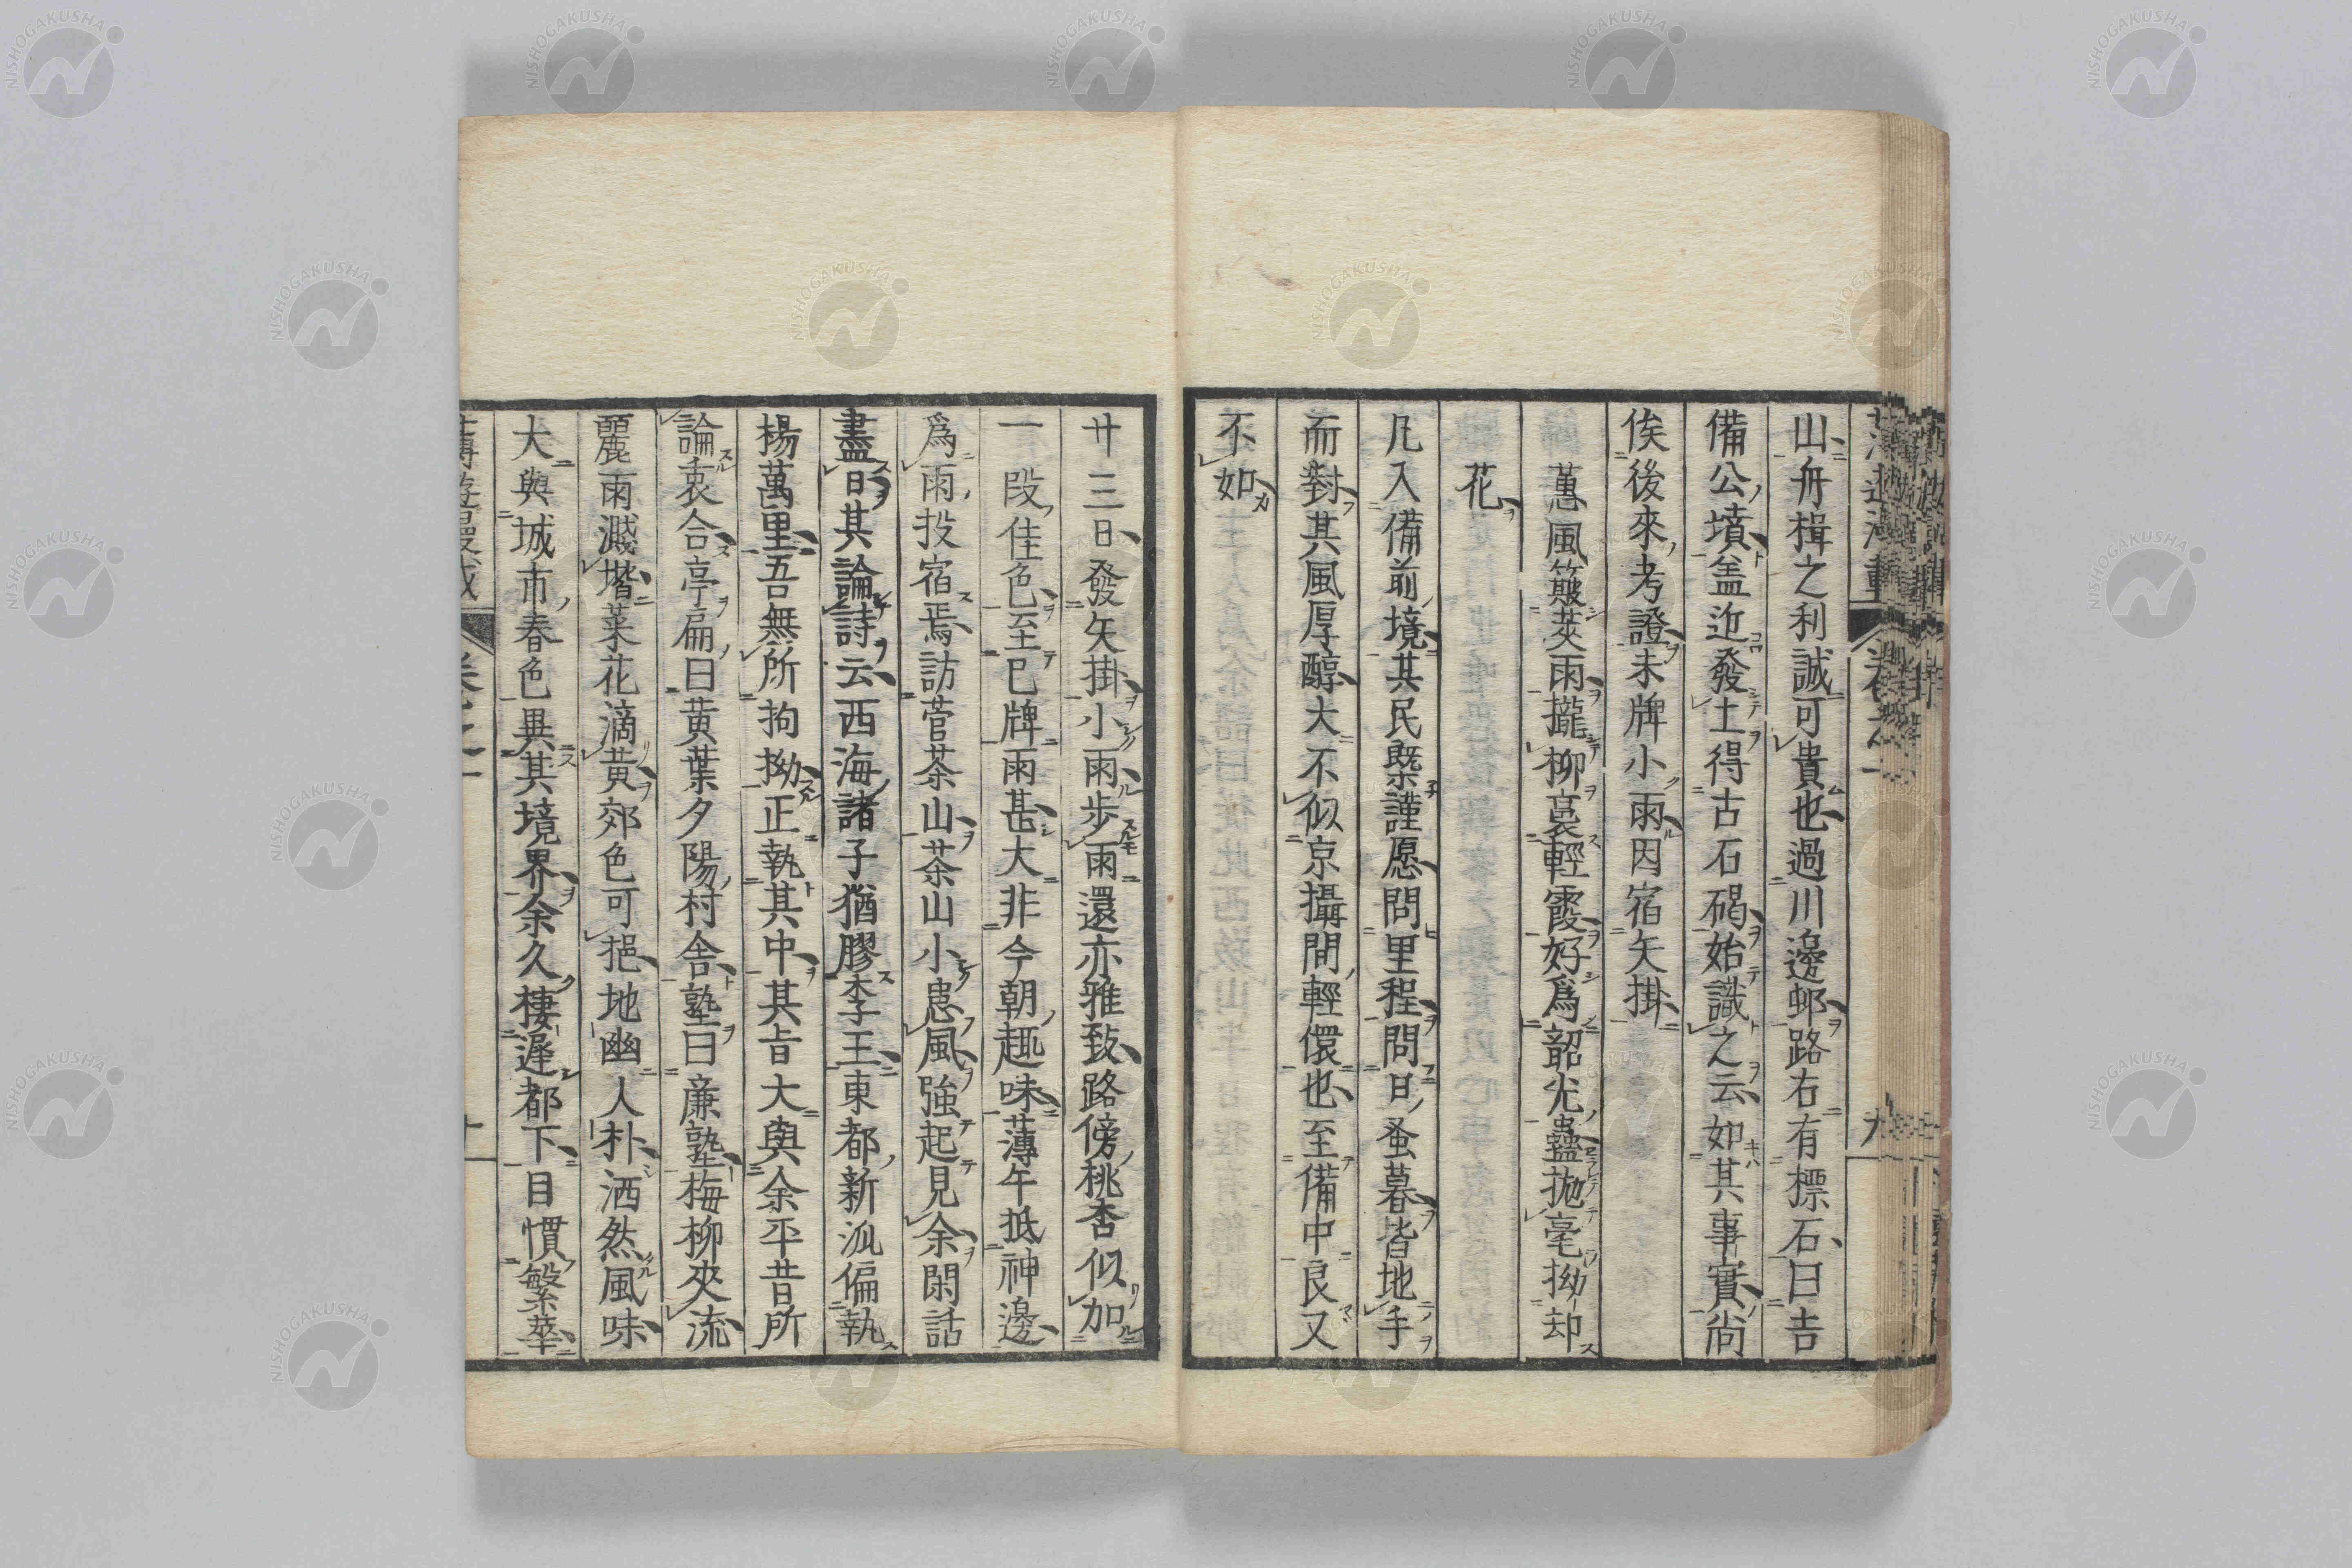 山舟楫之利誠可貴也過川邊邨路右有標石曰吉
備公墳盖近發土得古石碣始識之云如其事實尚
俟後來考證未牌小雨因宿矢掛
蕙風簸莢雨攏柳裏輕霞好爲韶光蠱拋毫拗却
花
凡入備前境其民既謹愿問里程問日蚤暮皆地手
而對其風厚醇大不似京攝間輕儇也至備中良又
不如
廿三日發矢掛小雨步雨還亦雅致路傍桃杏似加
一段佳色至巳牌雨甚大非今朝趣味薄午抵神邊
爲雨投宿焉訪菅茶山茶山小恙風強起見余閑話
盡日其論詩云西海諸子猶膠李王東都新派偏執
楊萬里吾無所拘拗正執其中其旨大與余平昔所
論衷合亭扁曰黃葉夕陽村舍塾曰廉塾梅柳夾流
麗雨濺堦菜花滴黃郊色可挹地幽人朴洒然風味
大與城市春色異其境界余久棲遲都下目慣繁華